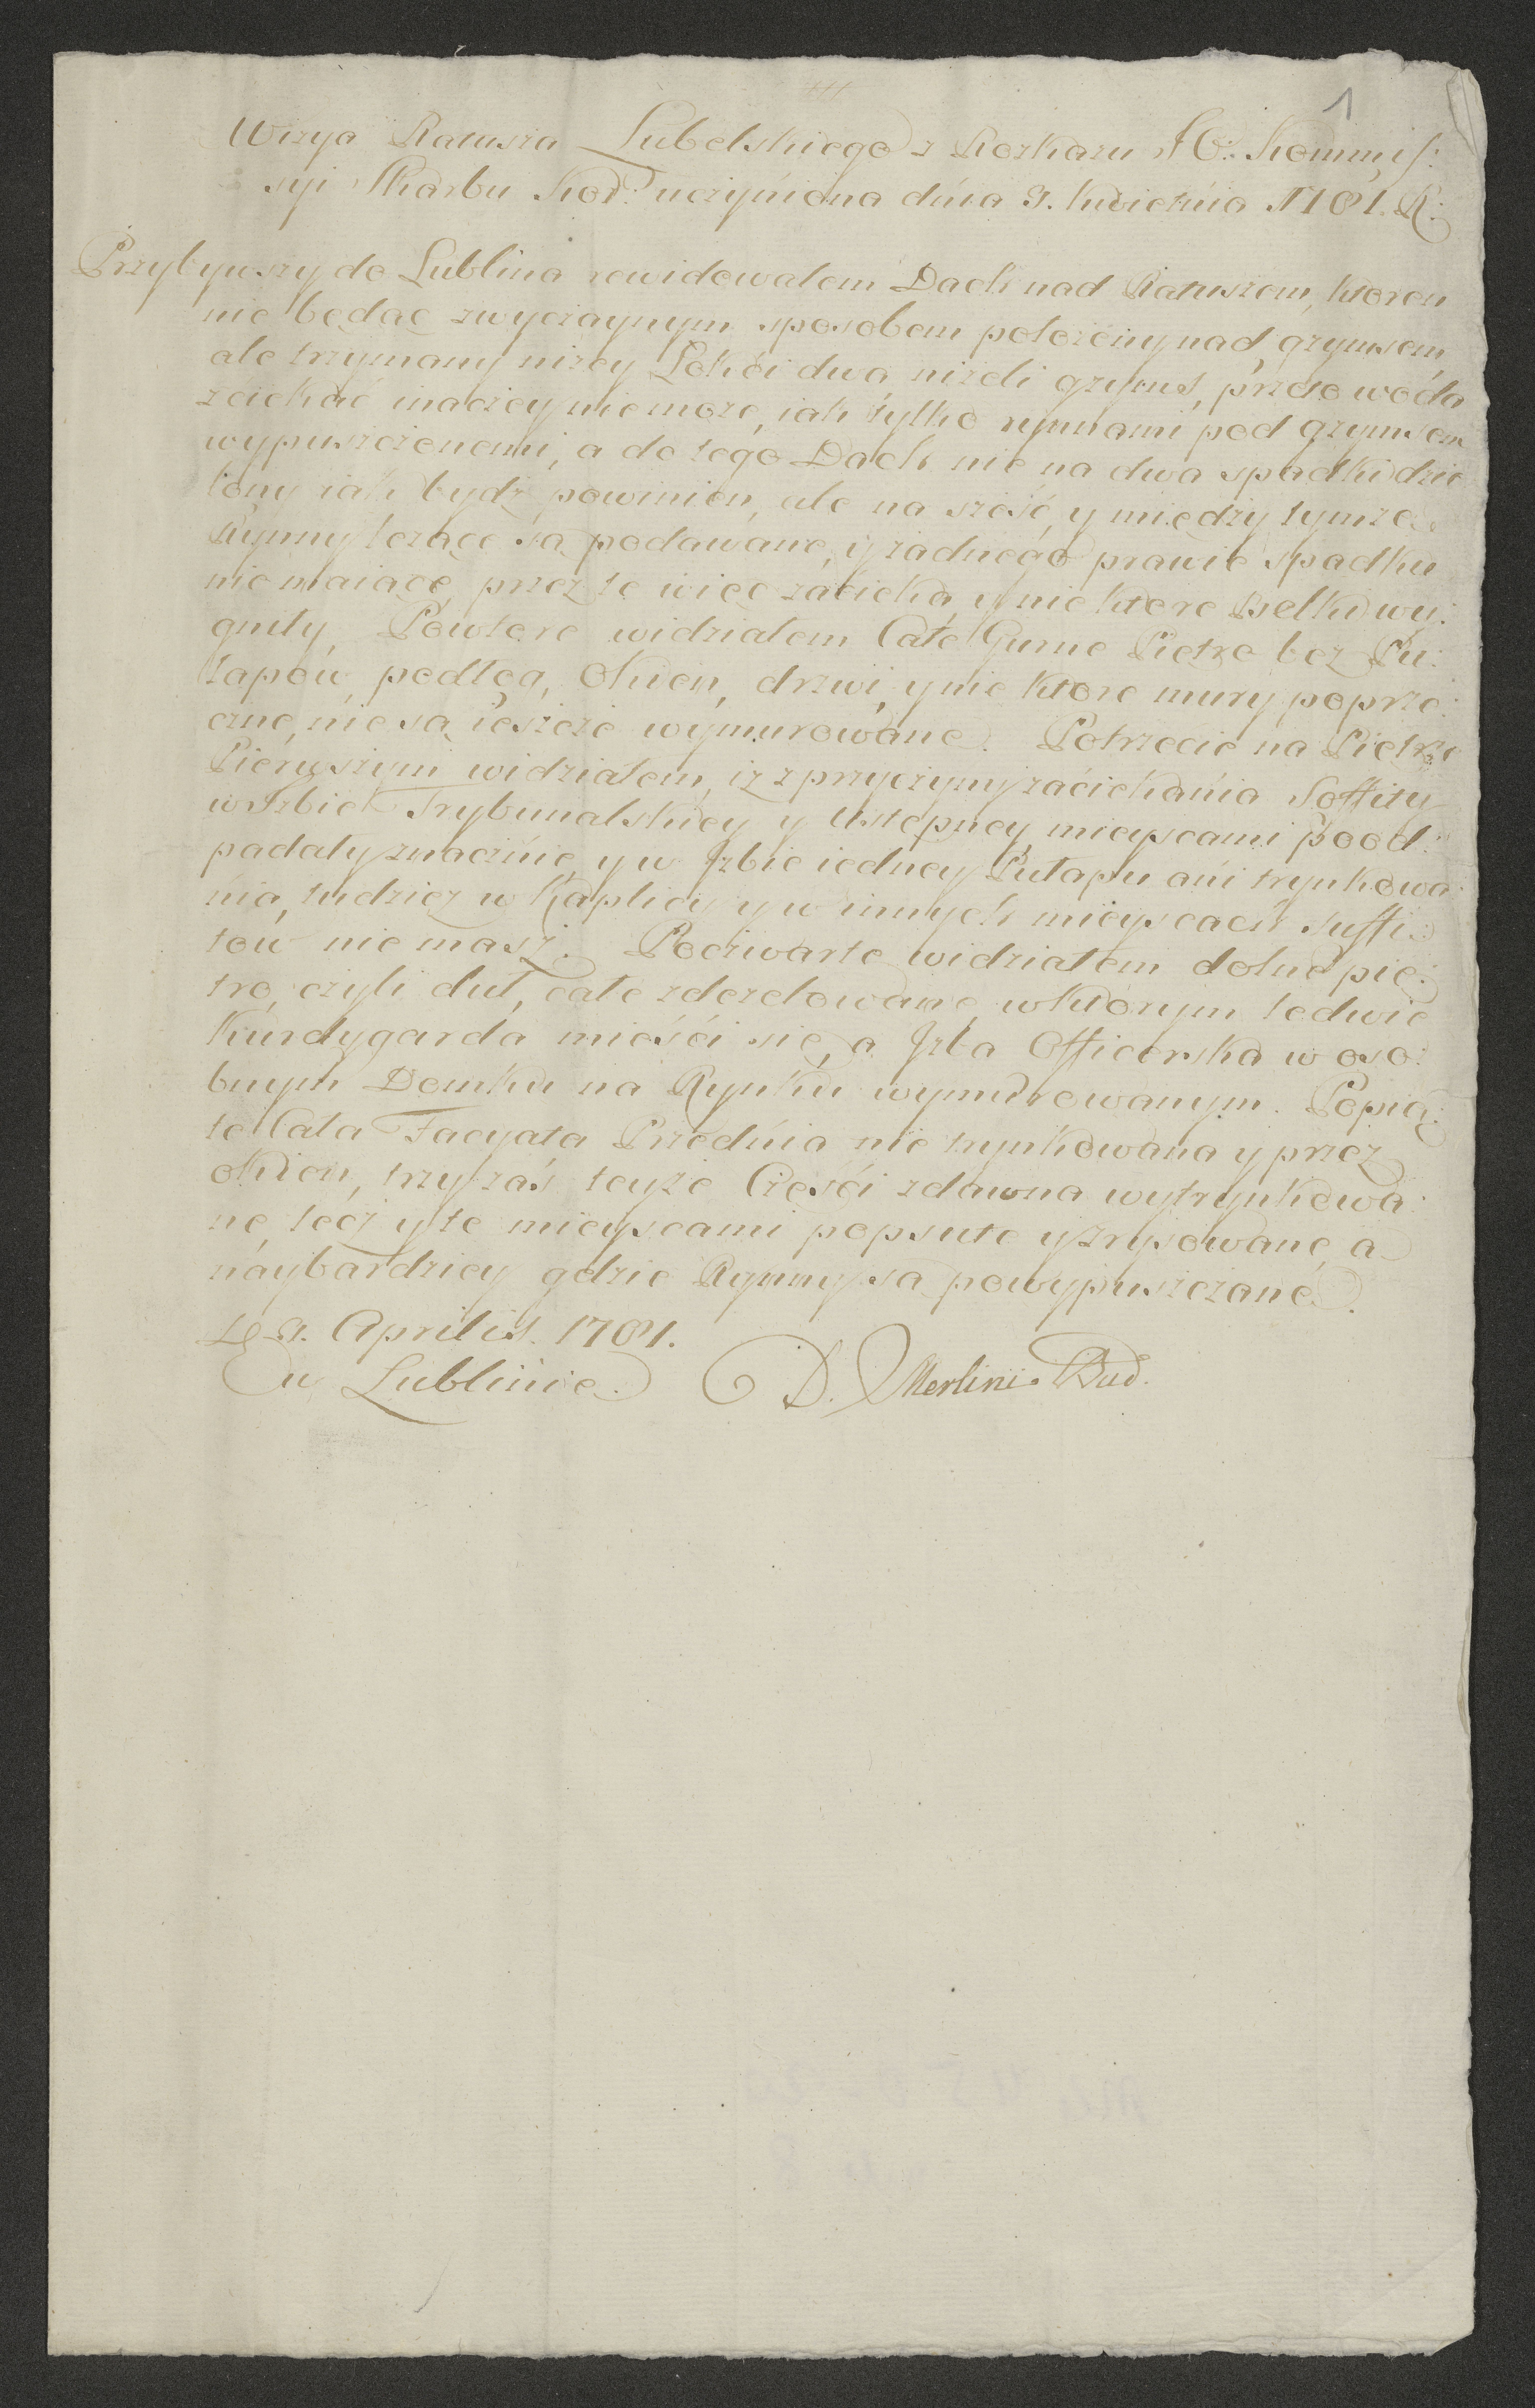 1
Wizya Ratusza Lubelskiego z Rozkazu J.O. Kommis:
syi Skarbu Kor: uczyniona dnia 9. kwietnia 1781. R:
Przybywszy do Lublina rewidowałem Dach nad Ratuszem, ktoren
nie będąc zwyczaynym sposobem położony nad gzymsem,
ale trzymany niżey Łokci dwa niżeli gzyms, przeto woda
zciekać inaczey nie może, iak tylko rynnami pod gzymsem
wypuszczonemi, a do tego Dach nie na dwa spadki dzie
lony iak bydź powinien, ale na sześć, y między tymże
Rynny leżące są podawane, y żadnego prawie spadku
nie maiące, przez te więc zacieka, y nie ktore Belki wy:
gniły. Powtore widziałem Całe Gurne Piętro bez Pu:
łapow, podłog, Okien, drzwi, y nie ktore mury poprze:
czne, nie są ieszcze wymurowane. Potrzecie na Piętrze
Pierwszym widziałem, iż z przyczyny zaciekania Soffity
w Izbie Trybunalskiey y Ustępney, mieyscami pood:
padały znacznie, y w Izbie iedney Pułapu ani trynkowa:
nia, tudzież w Kaplicy y w innych mieyscach suffi:
tow nie masz. Poczwarte widziałem dolne pię:
tro, czyli duł, całe zdezelowane, w którym ledwie
Kurdygarda mieści się, a Izba Officerska w oso:
bnym Domku na Rynku wymurowanym. Popią:
te Cała Facyata Przednia nie trynkowana y przez
okien, trzy zaś teyże Części zdawna wytrynkowa:
ne, lecz y te mieyscami popsute y zrysowane, a
naybardziey gdzie Rynny są powypuszczane.
9. Aprilis. 1781.
w Lublinie. D. Merlini Bud.